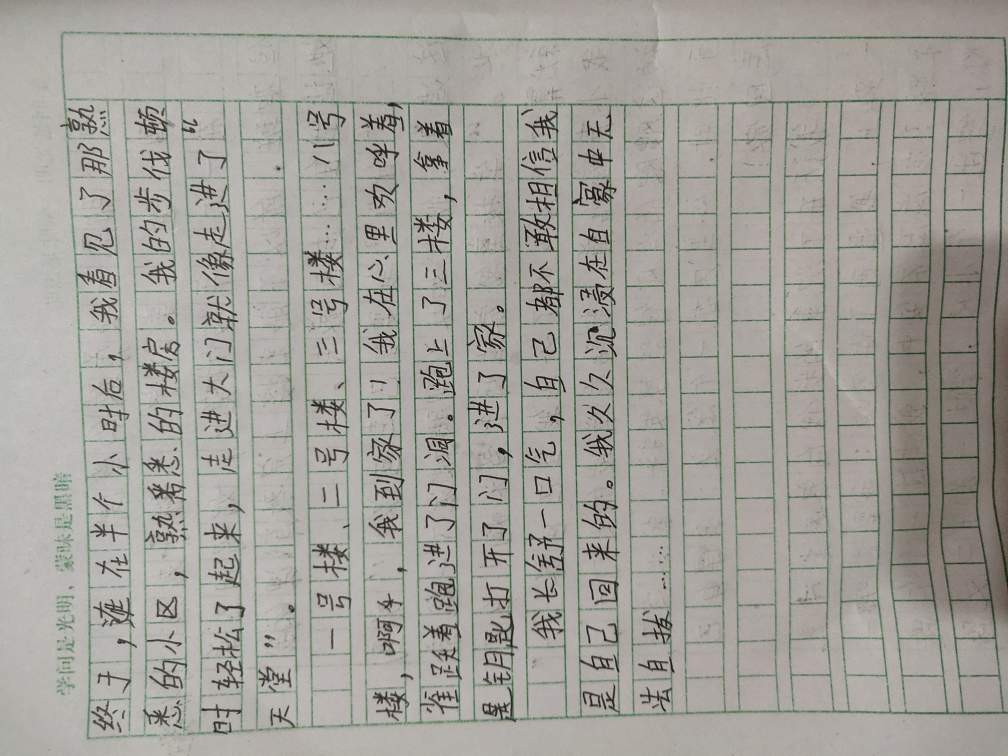 学问是光明，蒙昧是黑暗
终于，在半个小时后，我看见了那熟
悉的小区，熟悉的楼房。我的步伐顿
时轻松了起来，走进大门就像走进了“
天堂”。
一号楼、二号楼、三号楼……八号
楼，啊，我到家了！我在心里欢呼着，
雀跃着跑进了门洞。跑上了三楼，拿着
钥匙打开了门，进了家。
我长舒一口气，自己都不敢相信我
是自己回来的。我久久沉浸在自豪中无
法自拔……